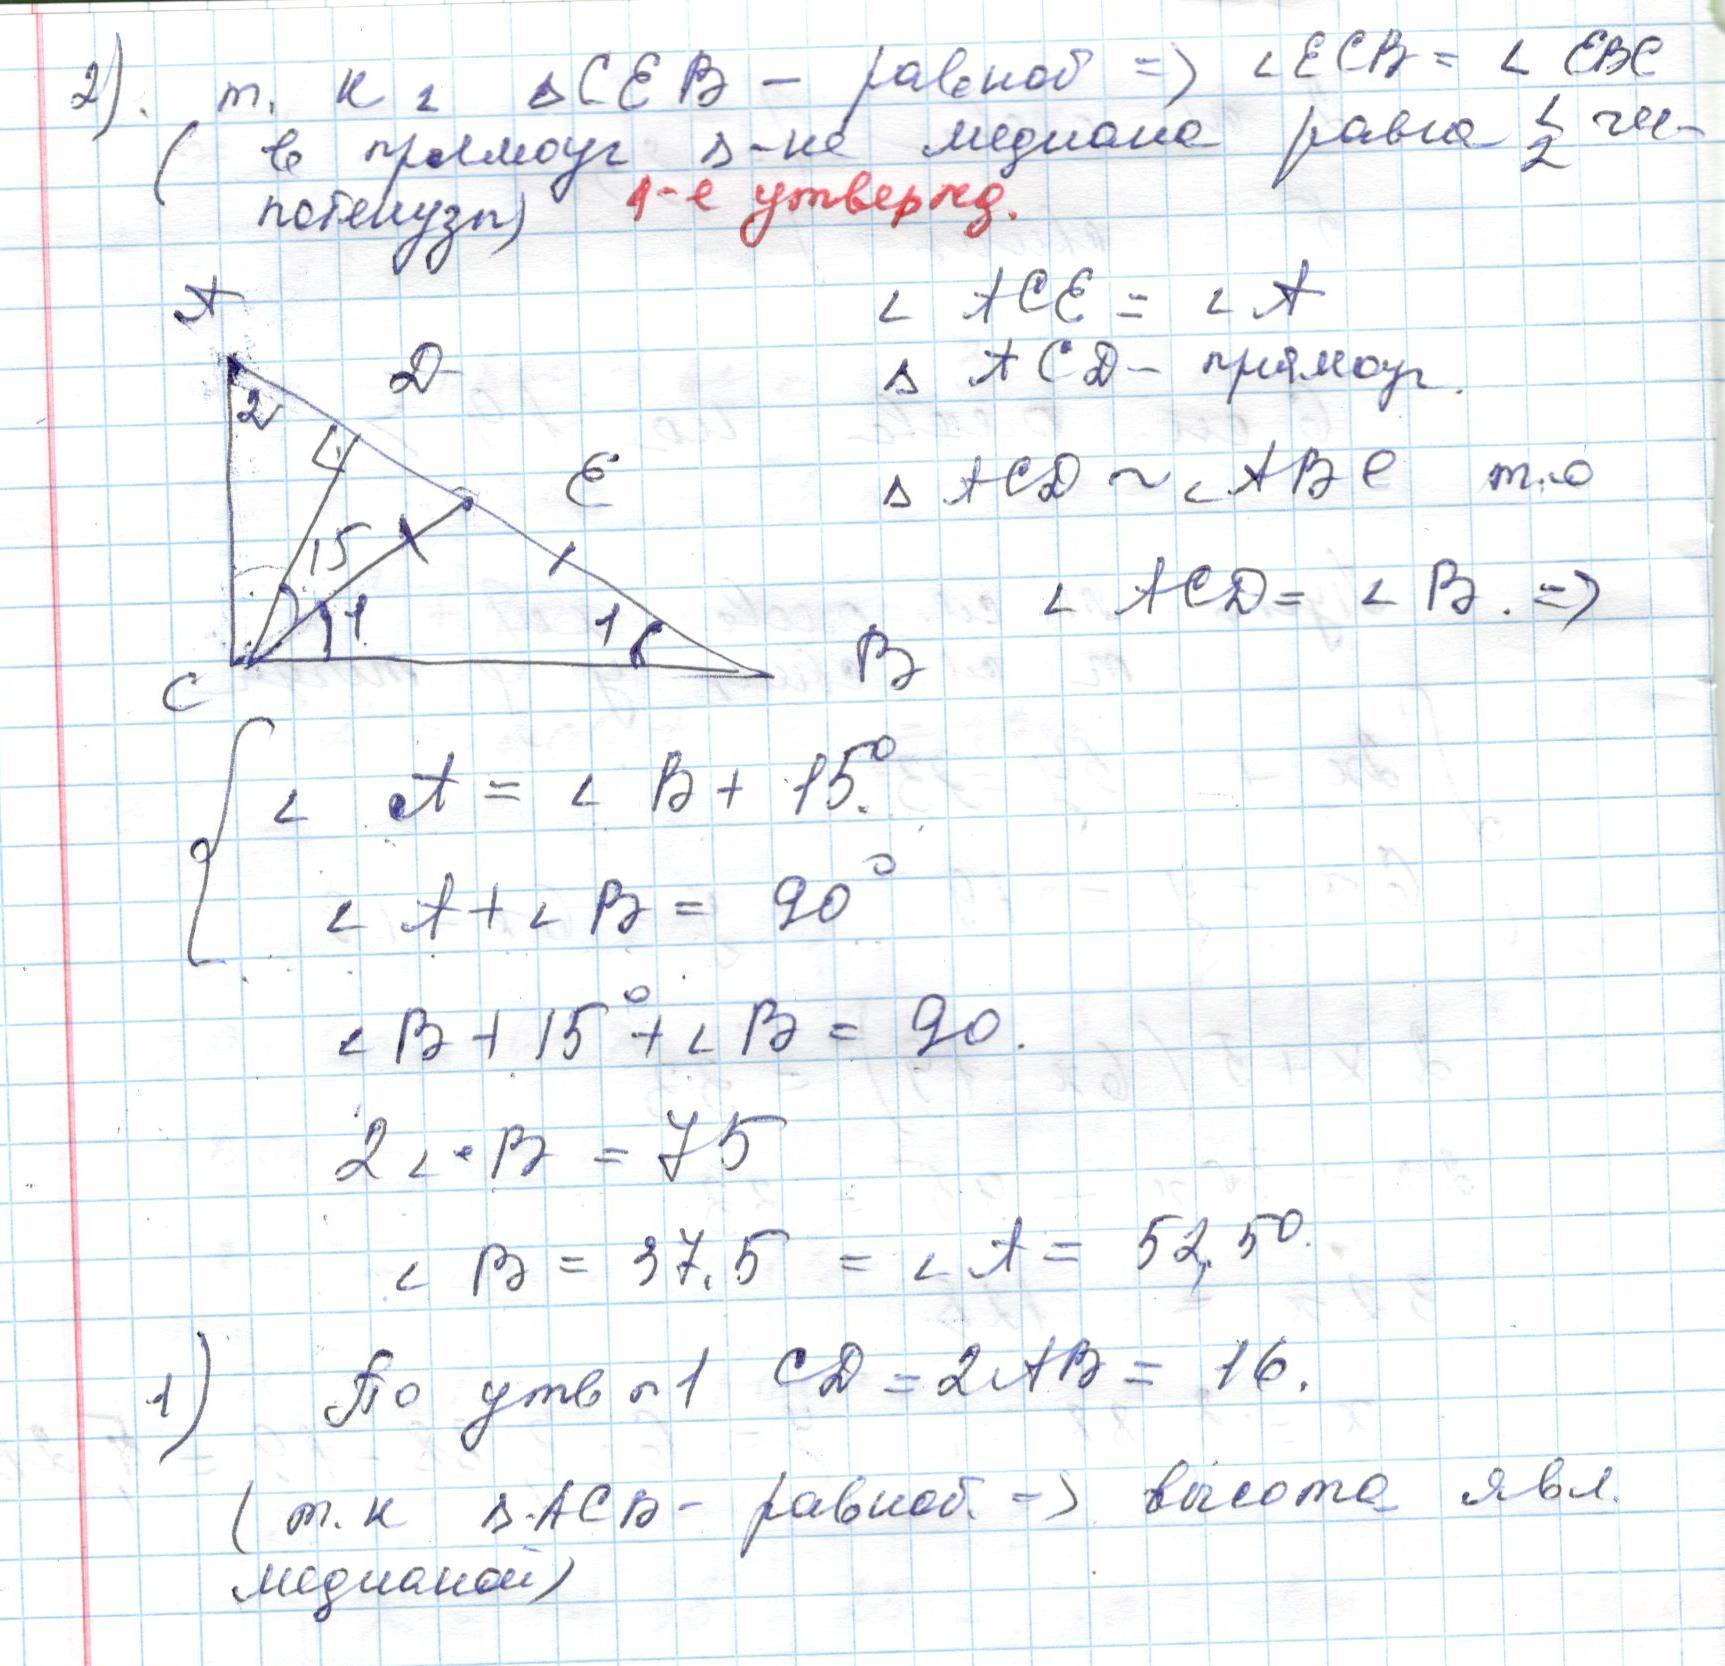 2). т. к. ∆CEB - равноб => ∠ECB = ∠EBC
( в прямоуг ∆-ке медиана равна 1/2 ги-
потенузы) 1-е утвержд.
A
D
2
E
15
1
1
C
B
∠ACE = ∠A
∆ACD - прямоуг.
∆ACD ~ ∠ABC т.о
∠ACD = ∠B. =>
{ ∠A = ∠B + 15°.
∠A + ∠B = 90°
∠B + 15° + ∠B = 90.
2∠B = 75
∠B = 37.5 = ∠A = 52,5°.
1) По утв 1 CD = 2AB = 16.
(т.к ∆ACB - равноб. => высота явл.
медианой)